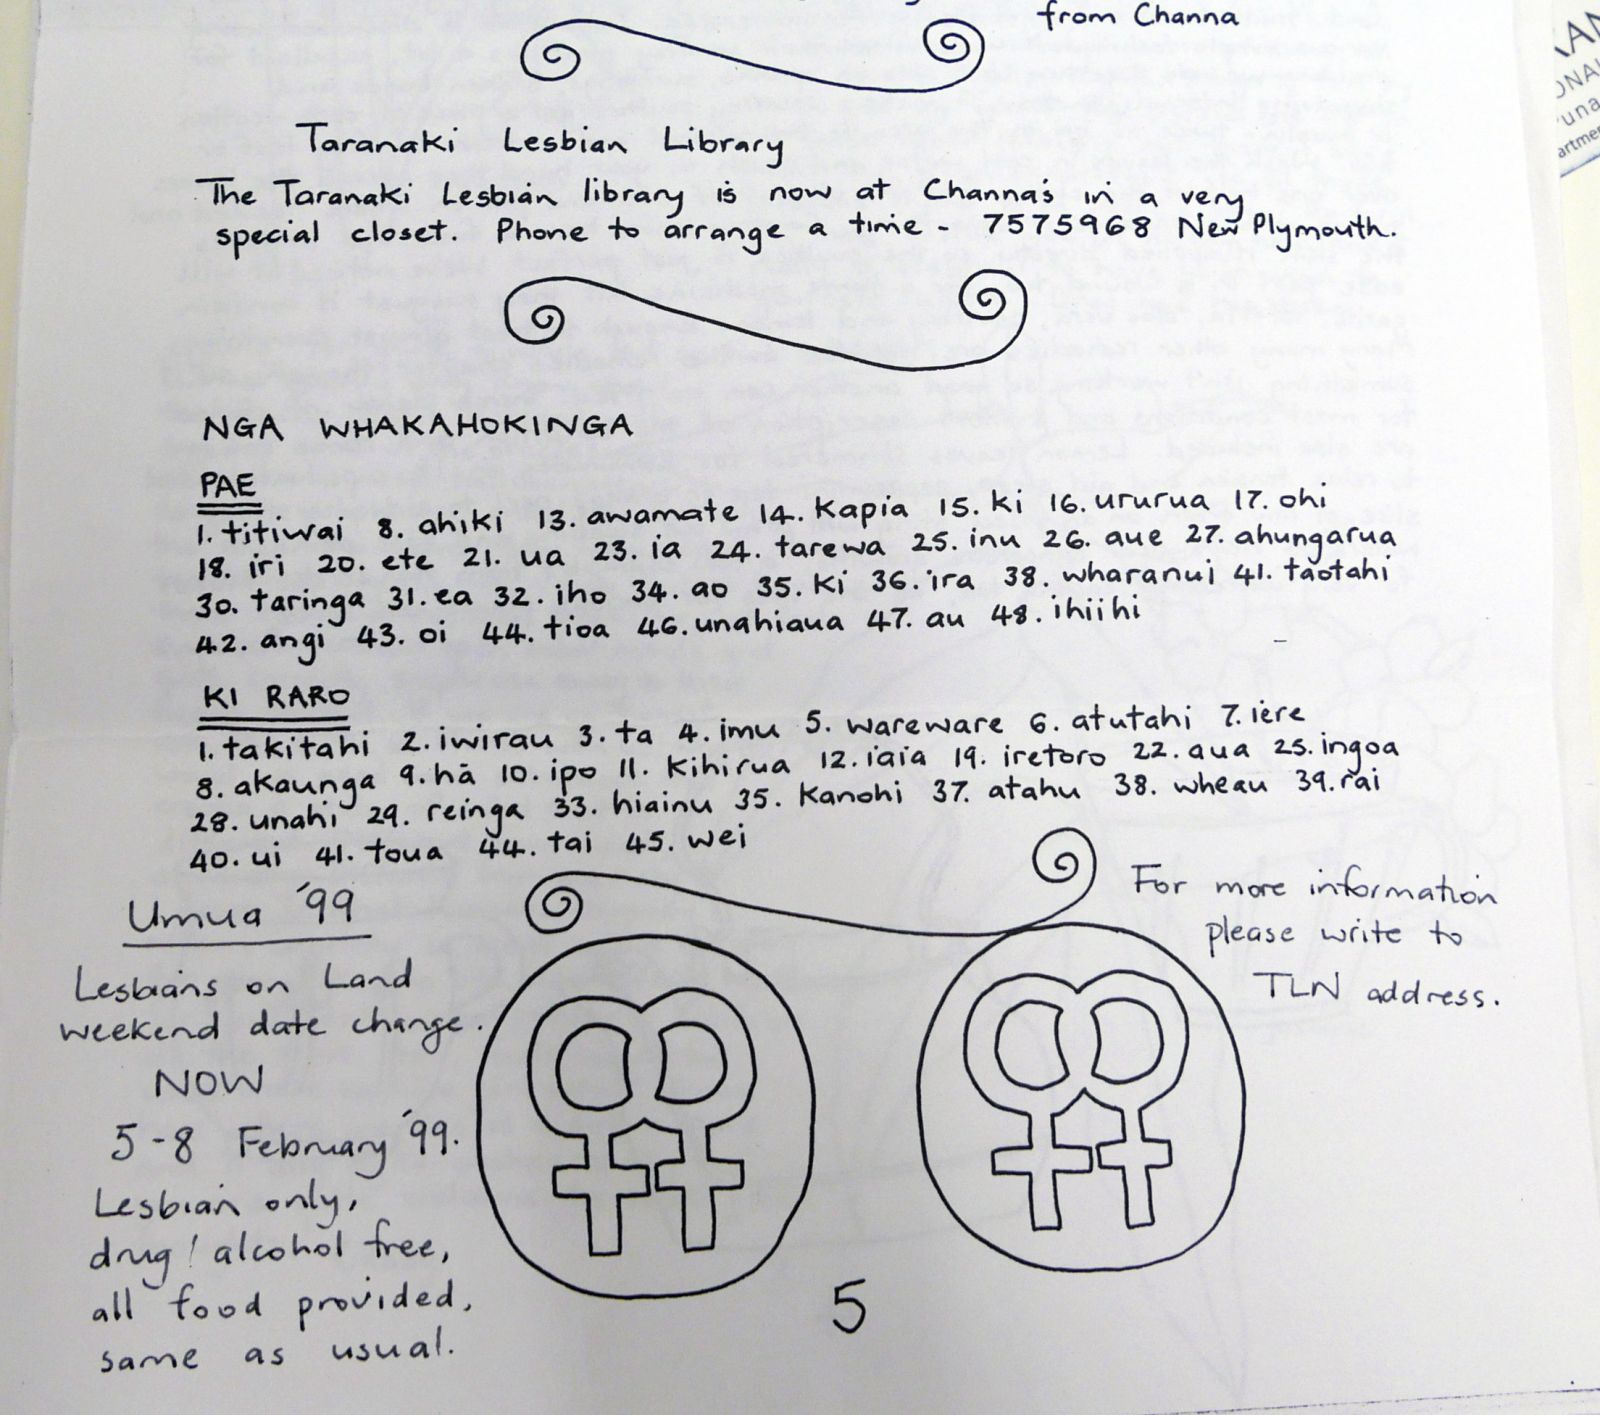 from Channa
Taranaki Lesbian Library
The Taranaki Lesbian library is now at Channa's in a very
special closet. Phone to arrange a time - 7575968 New Plymouth.
NGA WHAKAHOKINGA
PAE
1. titiwai 8. ahiki 13. awamate 14. Kapia 15. ki 16. ururua 17. ohi
18. iri 20. ete 21. ua 23. ia 24. tarewa 25. inu 26. aue 27. ahungarua
30. taringa 31. ea 32. iho 34. ao 35. ki 36. ira 38. wharanui 41. taotahi
42. angi 43. oi 44. tioa 46. unahiaua 47. au 48. ihiihi
KI RARO
1. takitahi 2. iwirau 3. ta 4. imu 5. wareware 6. atutahi 7. iere
8. akaunga 9. hā 10. ipo 11. Kihirua 12. iaia 19. iretoro 22. aua 25. ingoa
28. unahi 29. reinga 33. hiainu 35. Kanohi 37. atahu 38. wheau 39. rai
40. ui 41. toua 44. tai 45. wei
Umua '99
Lesbians on Land
weekend date change.
NOW
5-8 February '99.
Lesbian only,
drug/alcohol free,
all food provided,
same as usual.
For more information
please write to
TLN address.
5